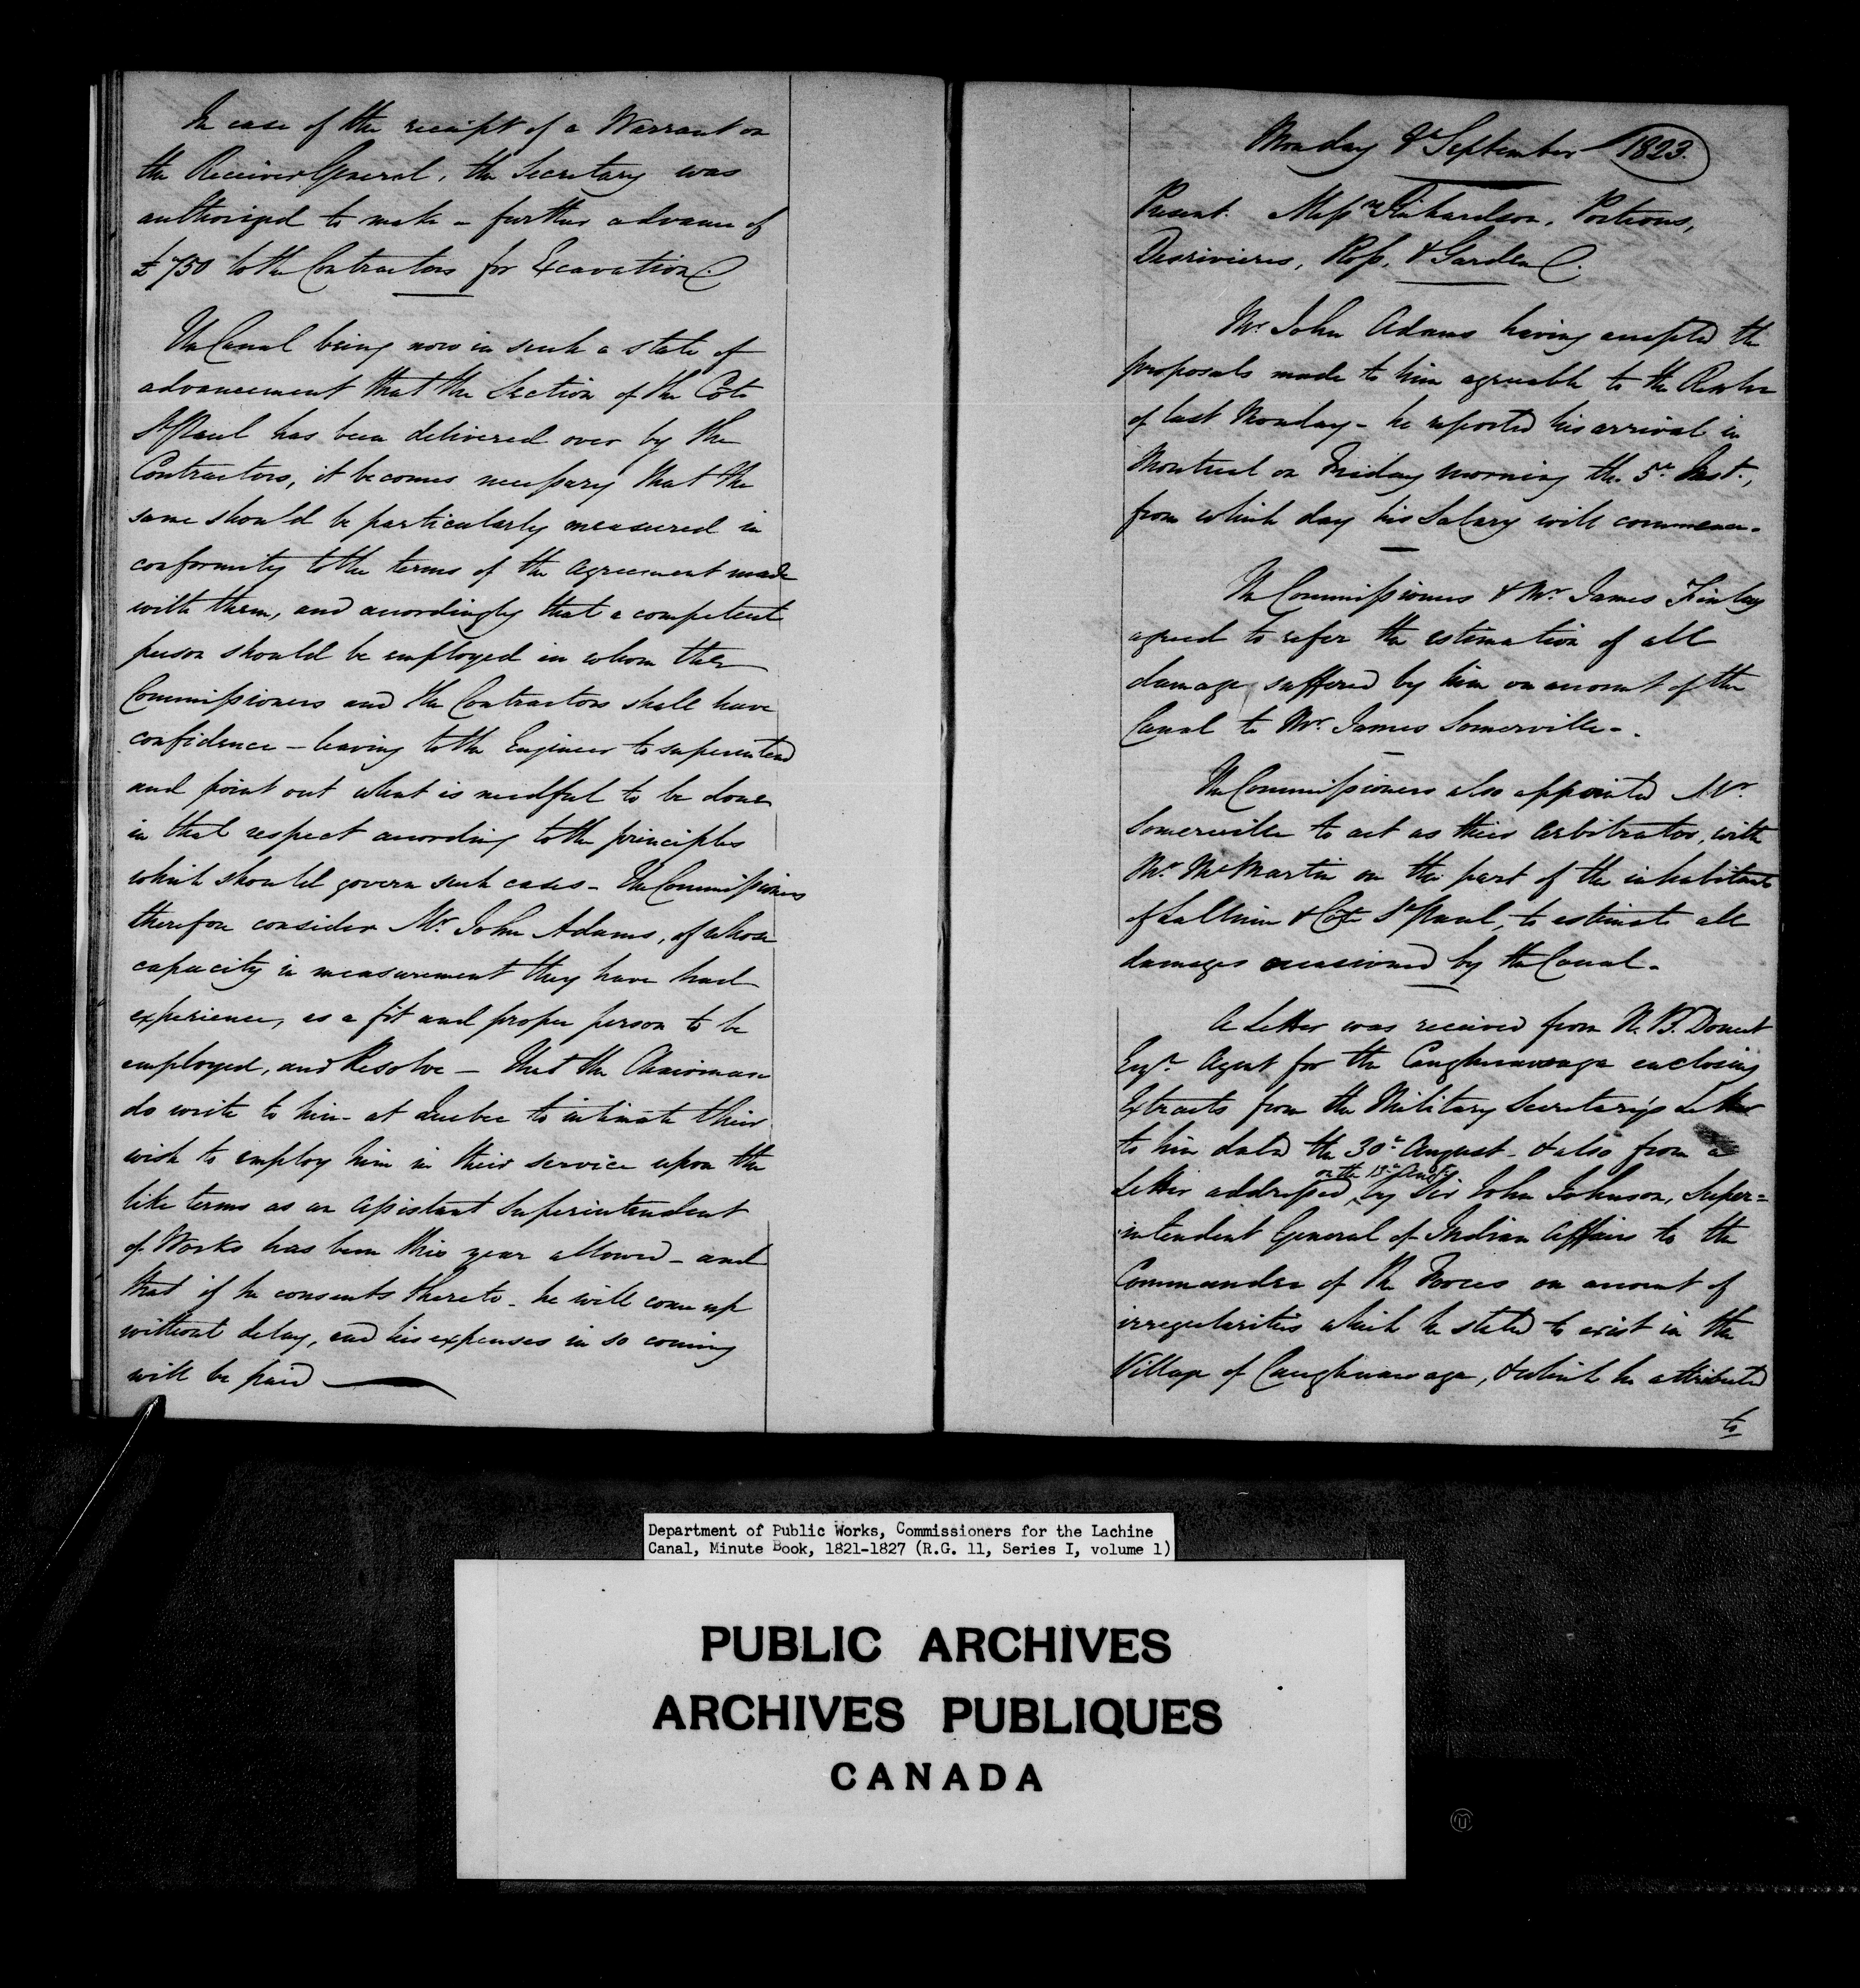 In case of the receipt of a Warrant on
the Receiver General, the Secretary was
authorized to make a further advance of
£750 to the Contractors for Excavation.
The Canal being now in such a state of
advancement that the Section of the Coté
St Paul has been delivered over by the
Contractors, it becomes necessary that the
same should be particularly measured in
conformity to the terms of the Agreement made
with them, and accordingly that a competent
person should be employed in whom the
Commissioners and the Contractors shall have
confidence - leaving to the Engineer to superintend
and point out what is needful to be done
in that respect according to the principles
which should govern such cases - The Commissioners
therefore consider Mr. John Adams, of whose
capacity in measurement they have had
experience, as a fit and proper person to be
employed, and Resolve - That the Chairman
do write to him at Quebec to intimate their
wish to employ him in their service upon the
like terms as an Assistant Superintendent
of Works has been this year allowed - and
that if he consents thereto - he will come up
without delay, and his expenses in so coming
will be paid
Monday 8th September 1823.
Present. Messrs Richardson, Porteous,
Desrivieres, Ross, & Garden.
Mr. John Adams having accepted the
proposals made to him agreeable to the Resolve
of last Monday - he reported his arrival in
Montreal on Friday morning the 5th Inst.,
from which day his Salary will commence.
The Commissioners & Mr. James Finlay
agreed to refer the estimation of all
damage suffered by him on account of the
Canal to Mr. James Somerville.
The Commissioners also appointed Mr.
Somerville to act as their Arbitrator, with
Mr. McMartin on the part of the inhabitants
of Lachine & Coté St Paul, to estimate all
damages occasioned by the Canal.
A Letter was received from N. B. Doucet
Esqr. Agent for the Caughnawaga enclosing
Extracts from the Military Secretary's Letter
to him dated the 30th August - & also from a
on the 19th Augt.
Letter addressed by Sir John Johnson, Super=
intendent General of Indian Affairs to the
Commander of the Forces on account of
irregularities which he stated to exist in the
Village of Caughnawaga, & which he attributed
to
Department of Public Works, Commissioners for the Lachine
Canal, Minute Book, 1821-1827 (R.G. 11, Series I, volume 1)
PUBLIC ARCHIVES
ARCHIVES PUBLIQUES
CANADA